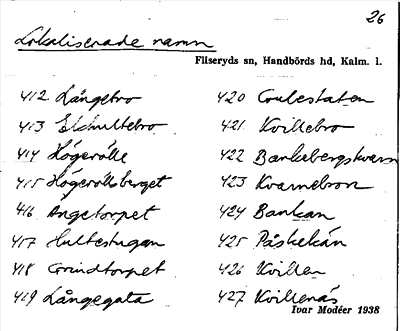 26
Lokaliserade namn
Fliseryds sn, Handbörds hd, Kalm. l.
412 Långebro
413 Ekhultebro
414 Högerölle
415 Högeröllsberget
416 Angetorpet
417 Hultestugan
418 Grindtorpet
419 Långegata
420
421 Kvillebro
422 Bankebergskvarn
423 Kvarnebron
424 Bankan
425 Påskekän
426 Kvillen
427 Kvillenäs
Ivar Modéer 1938